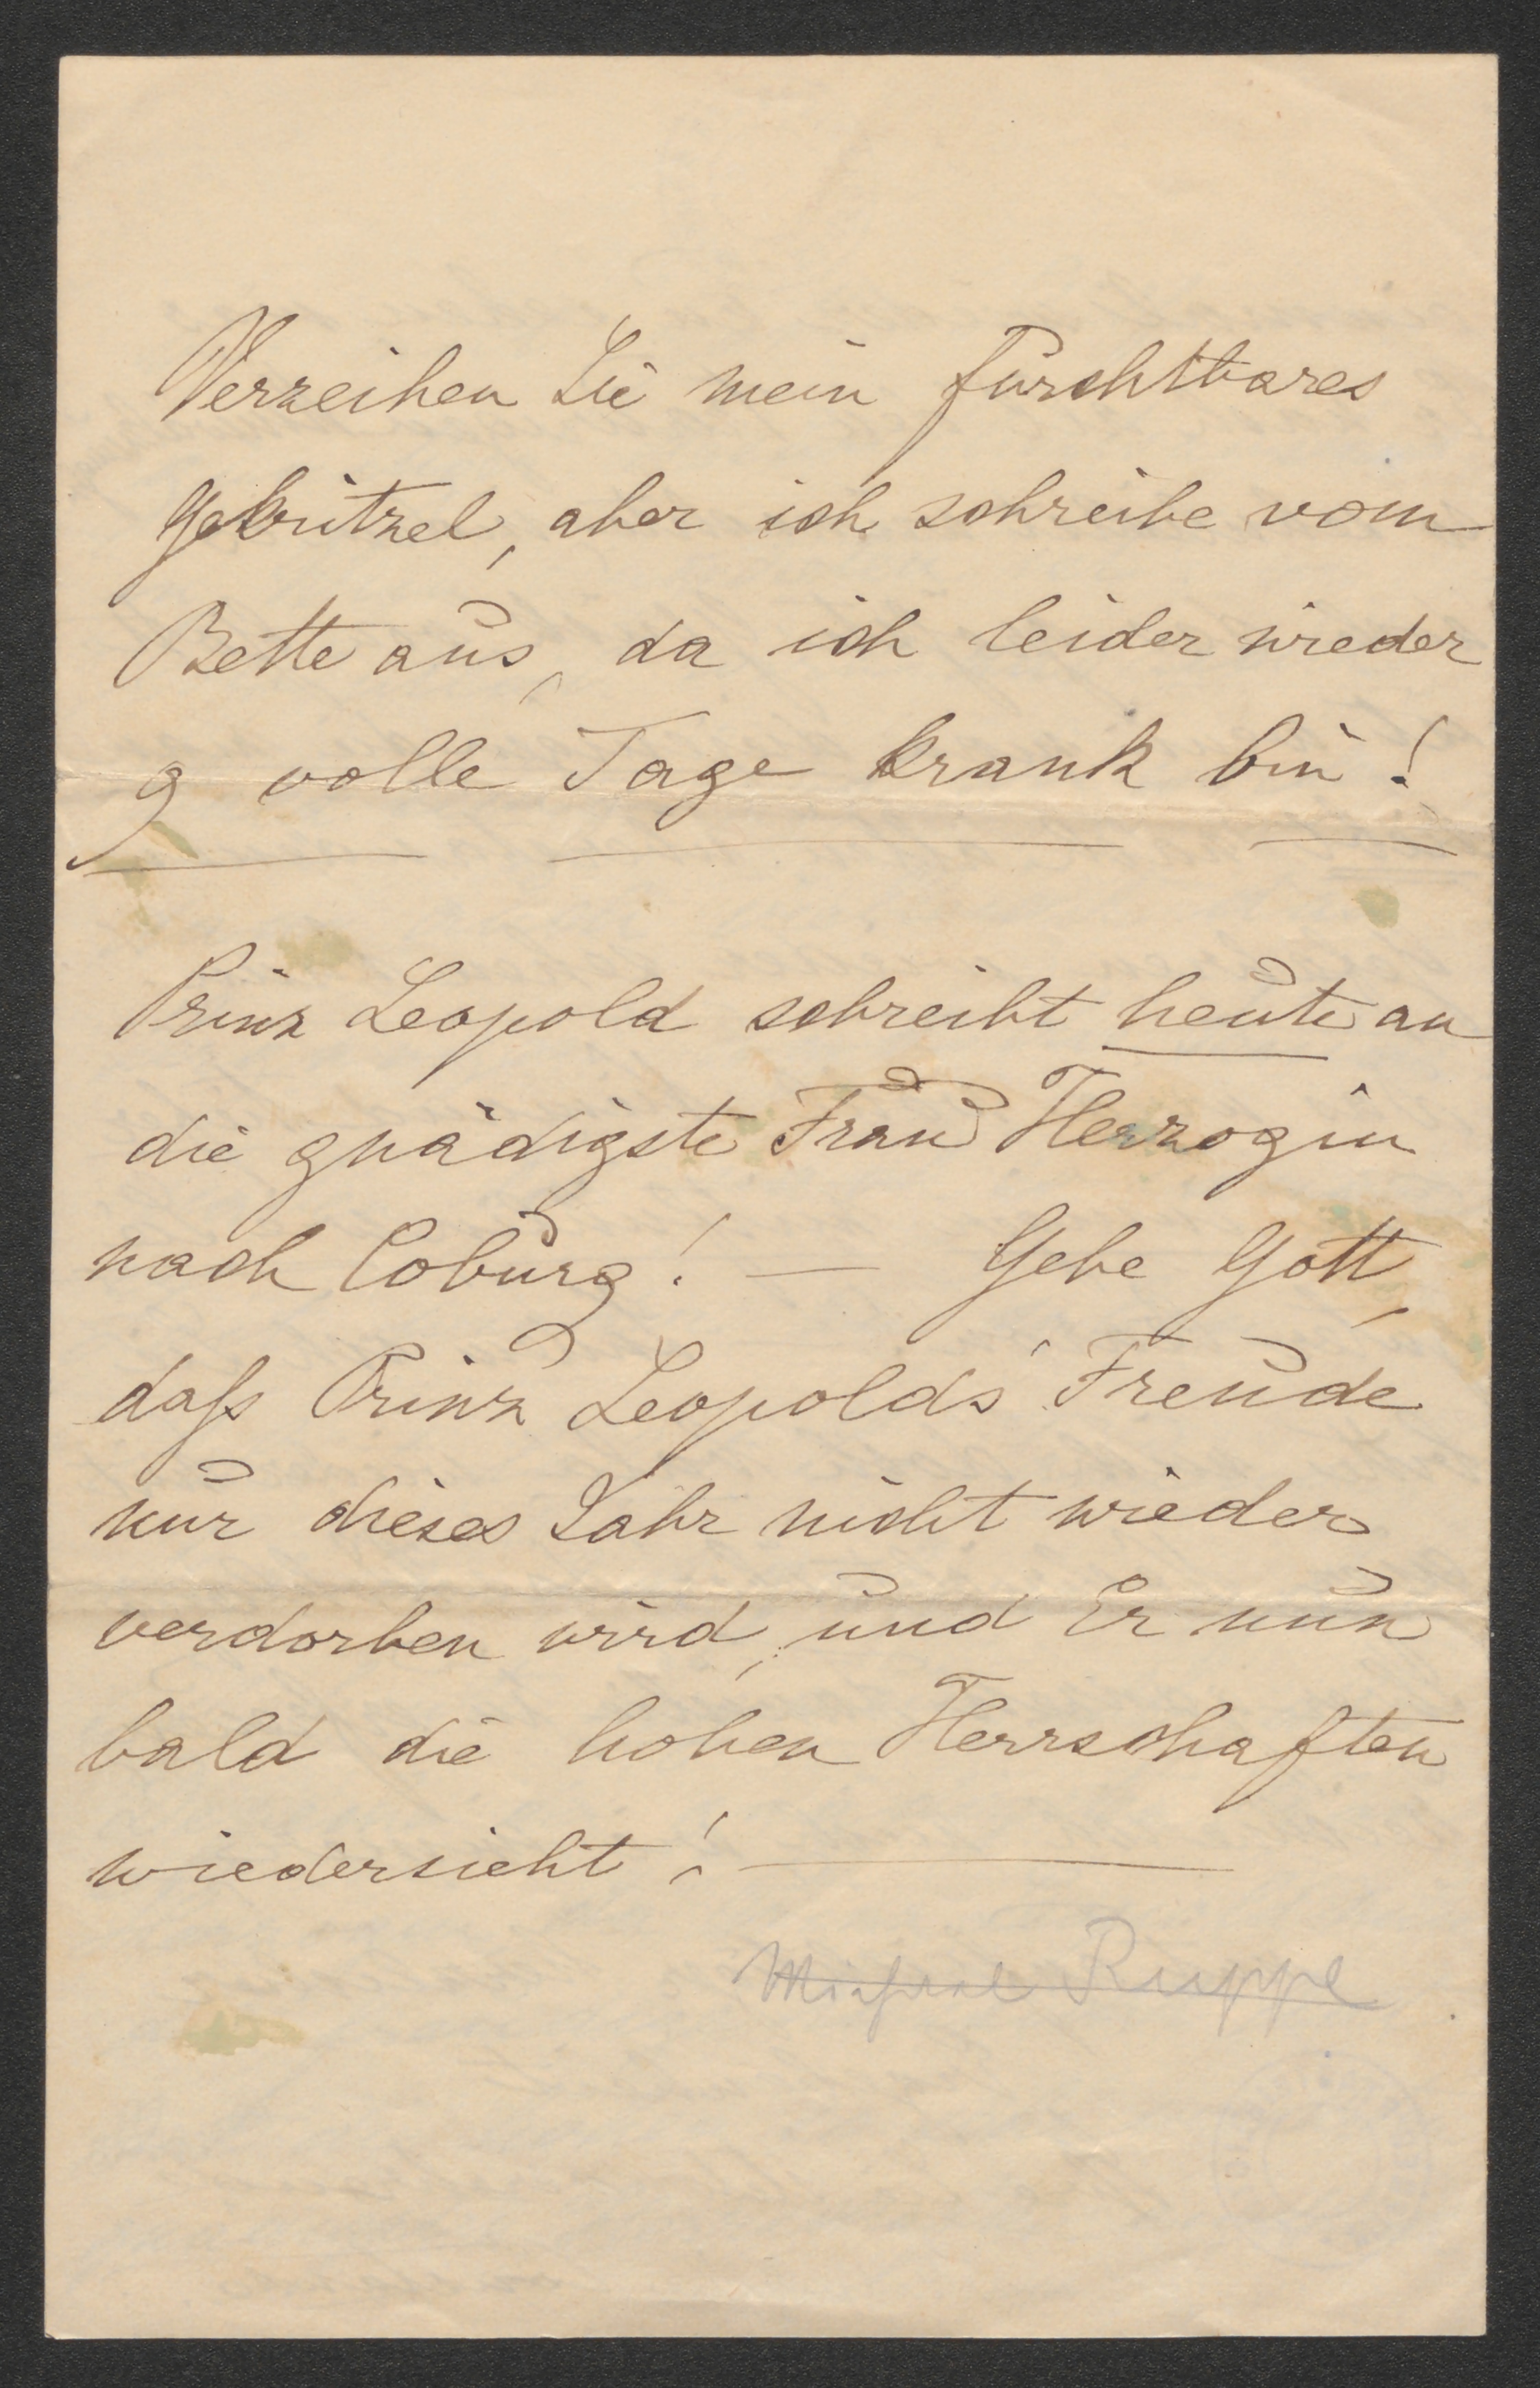 Verzeihen Sie mein furchtbares
Gekritzel, aber ich schreibe vom
Bette aus, da ich leider wieder
9 volle Tage krank bin!
Prinz Leopold schreibt heute an
die gnädigste Frau Herzogin
nach Coburg! — Gebe Gott,
daß Prinz Leopolds' Freude
nur dieses Jahr nicht wieder
verdorben wird, und Er nun
bald die hohen Herrschaften
wiedersieht! —
Michael Ruppe